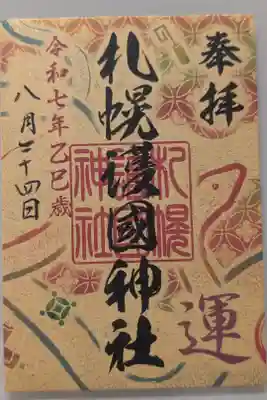 奉拝
運
札幌護國神社
札幌護國神社
令和七年乙巳歳
八月二十四日